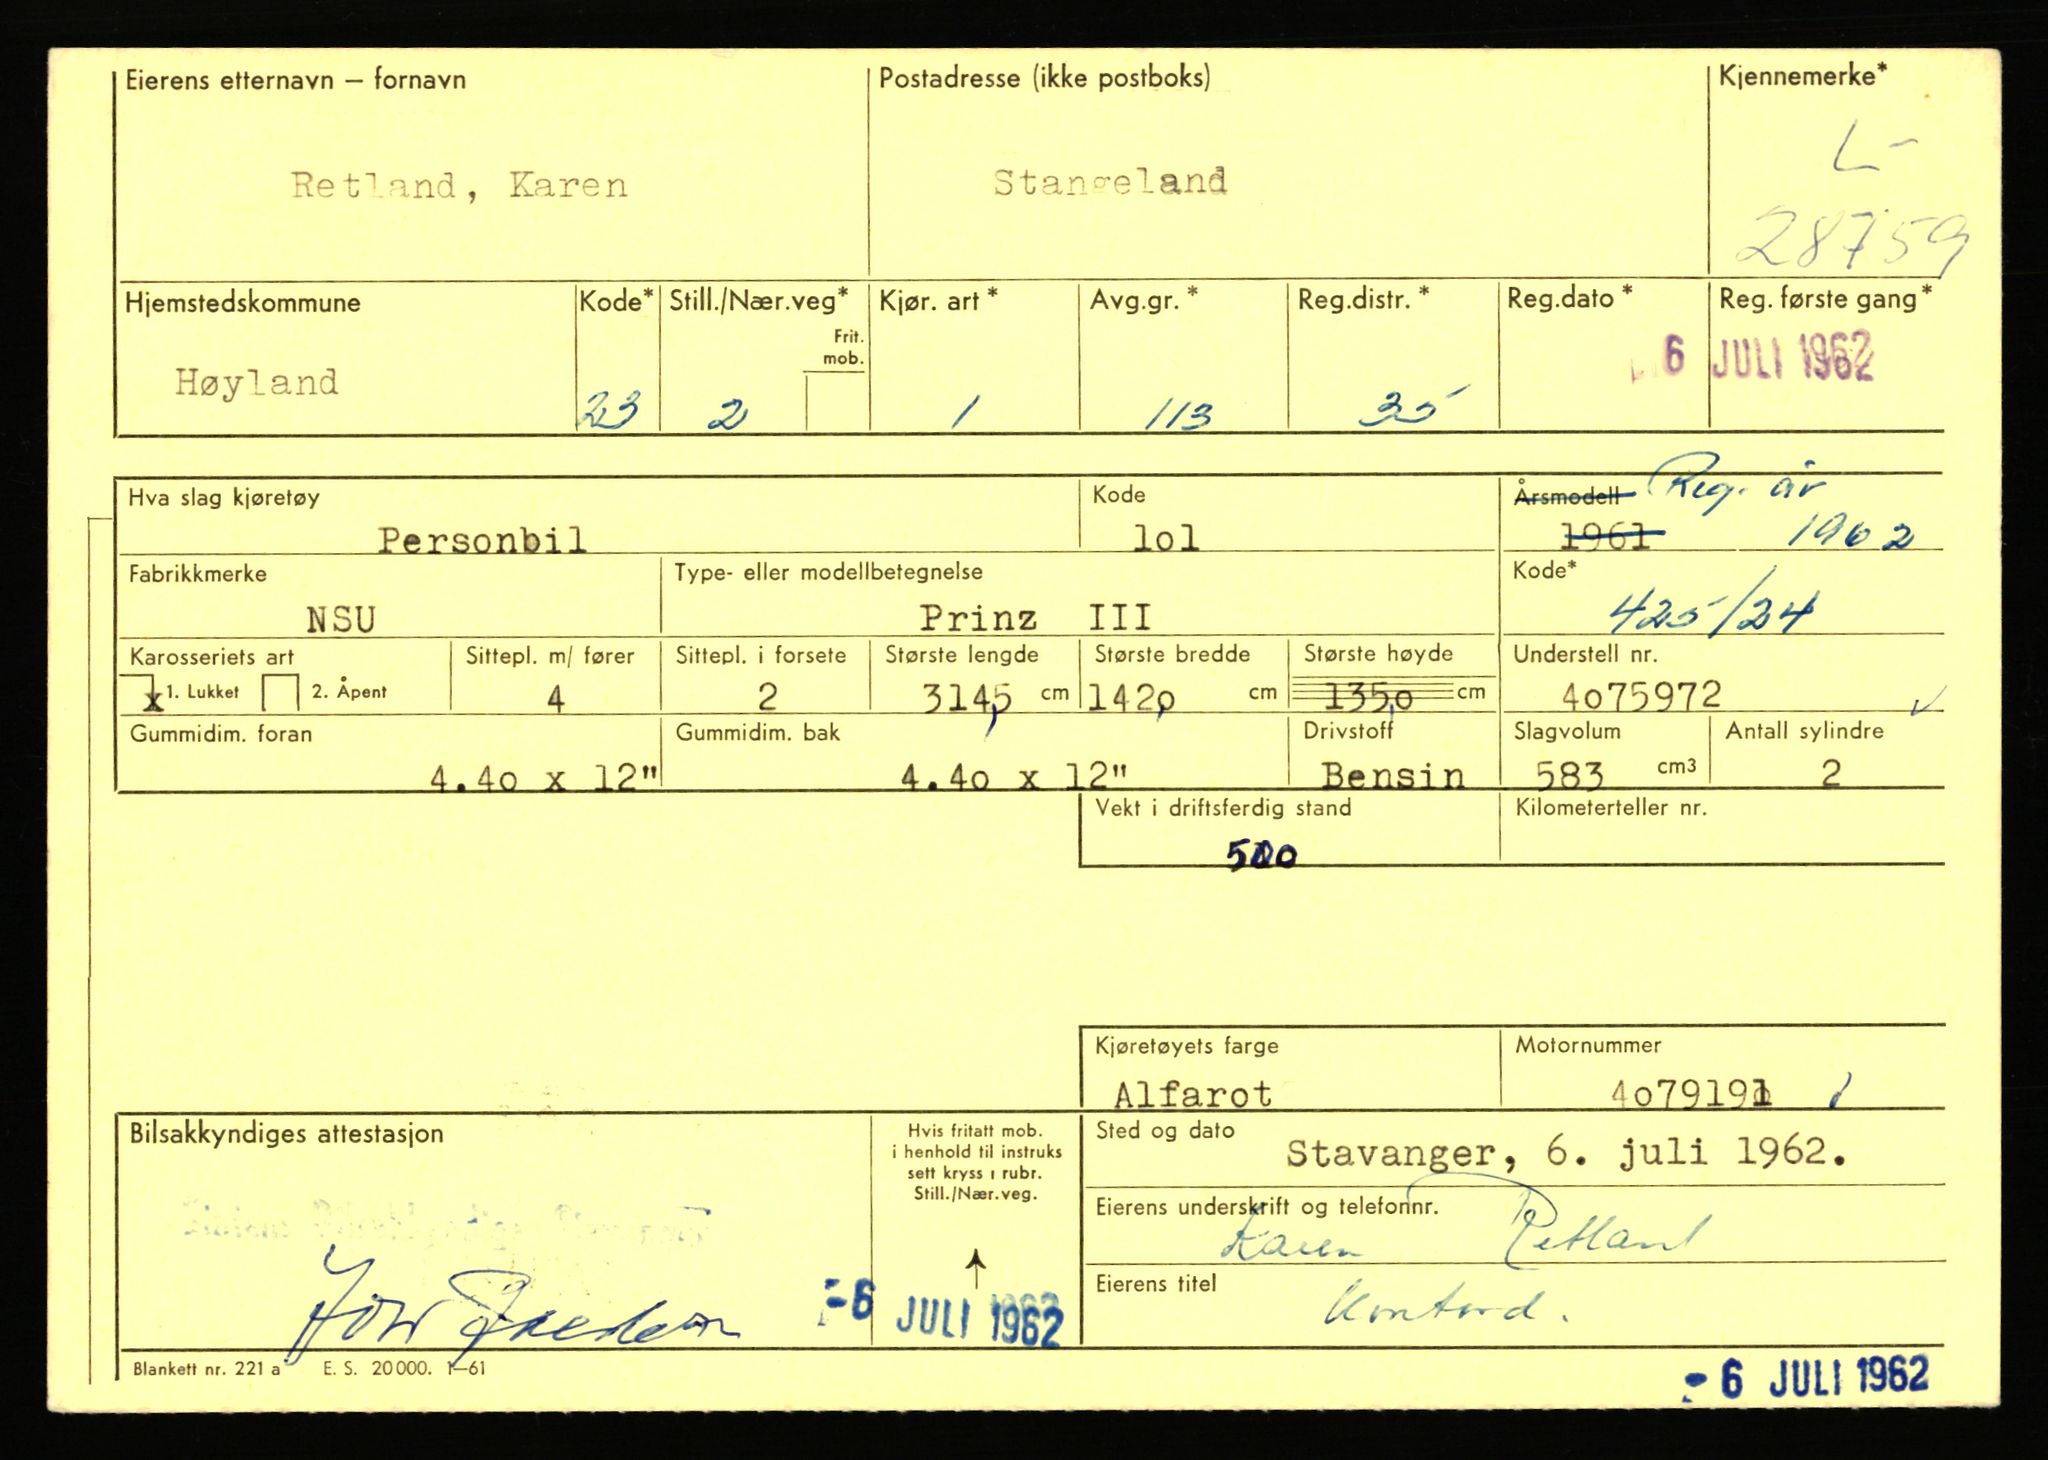 Eierens etternavn – fornavn Postadresse (ikke postboks) Kjennemerke*
L-
Retland, Karen Stangeland
28759
Hjemstedskommune Kode* Still./Nær.veg* Kjør. art * Avg.gr. * Reg.distr. * Reg.dato * Reg. første gang *
Frit.
mob.
6 JULI 1962
Høyland 23 2 1 113 35
Hva slag kjøretøy Kode Årsmodell Reg. år
Personbil lol 1961 1962
Fabrikkmerke Type- eller modellbetegnelse Kode*
NSU Prinz III 425/24
Karosseriets art Sittepl. m/ fører Sittepl. i forsete Største lengde Største bredde Største høyde Understell nr.
x 1. Lukket 2. Åpent 4 2 314,5 cm 142,o cm 135,o cm 4o75972 ✓
Gummidim. foran Gummidim. bak Drivstoff Slagvolum Antall sylindre
4.4o x 12" 4.4o x 12" Bensin 583 cm3 2
Vekt i driftsferdig stand Kilometerteller nr.
500
Kjøretøyets farge Motornummer
Alfarot 4o79191
Bilsakkyndiges attestasjon Hvis fritatt mob. i henhold til instruks sett kryss i rubr. Still./Nær.veg.
Sted og dato
Stavanger, 6. juli 1962.
Eierens underskrift og telefonnr.
Karen Retland
Eierens titel
Kontord.
-6 JULI 1962
Blankett nr. 221 a E. S. 20 000. 1–61
-6 JULI 1962